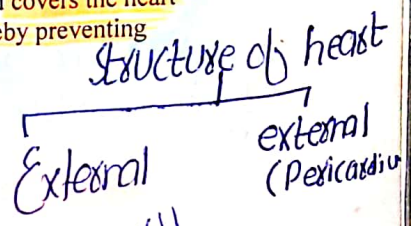 covers the heart
eby preventing
Structure of heart
External
external
(Pericardiu